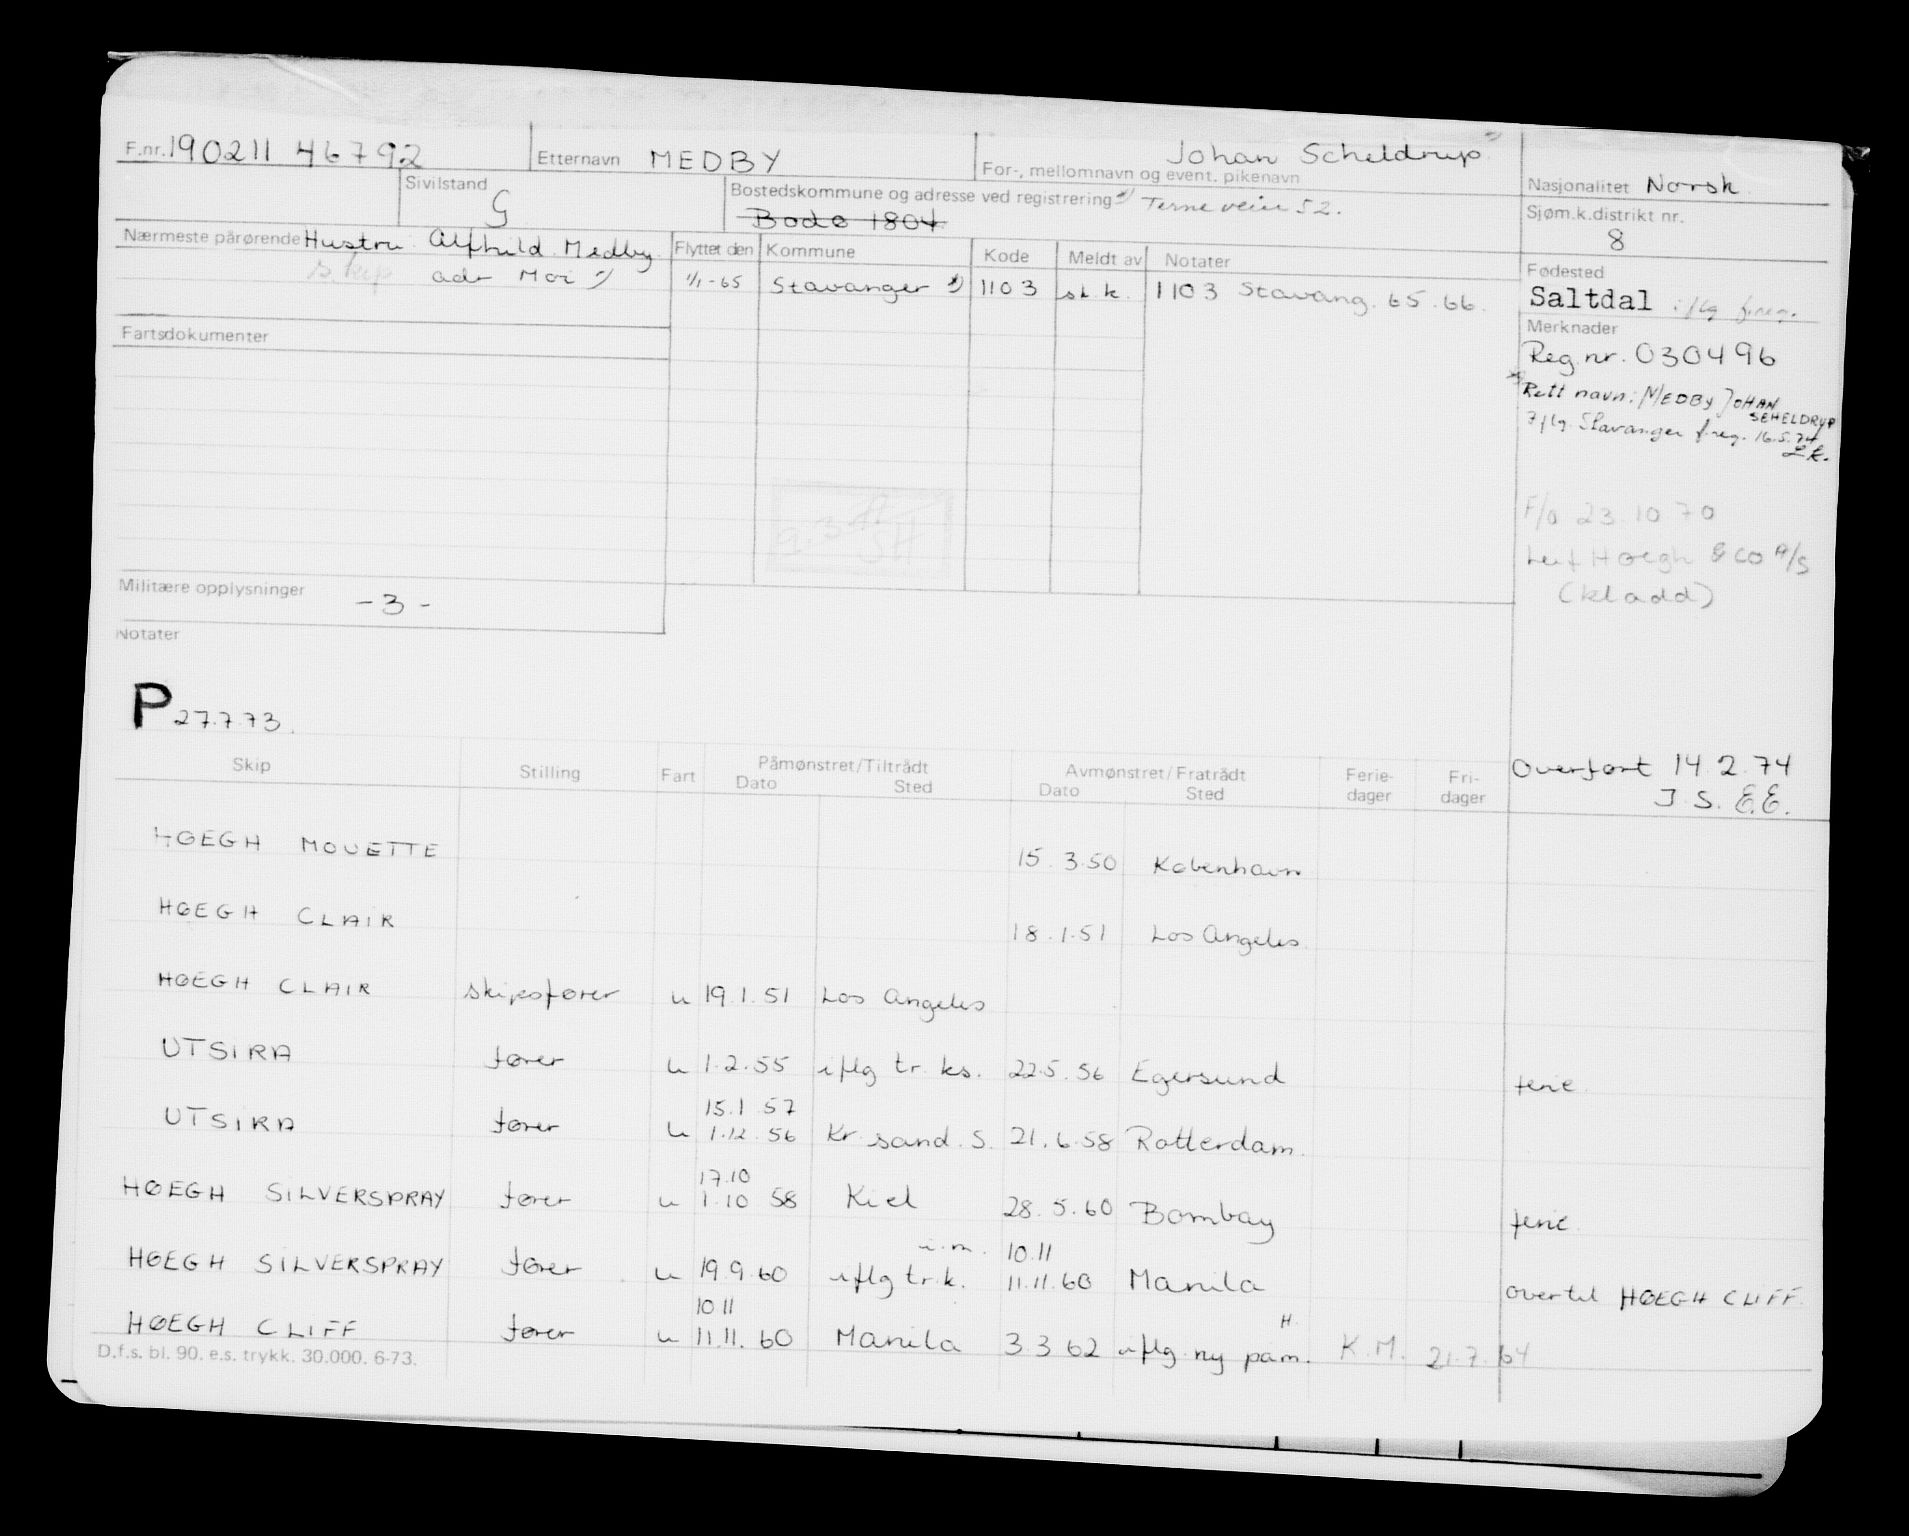 F.nr. 190211 46792 Etternavn MEDBY Johan Scheldrup
For-, mellomnavn og event. pikenavn
Nasjonalitet Norsk
Sivilstand G
Bostedskommune og adresse ved registrering Terneveien 52.
Bodø 1804
Sjøm.k.distrikt nr. 8
Nærmeste pårørende Hustru Alfhild Medby
adr Moi
Flyttet den Kommune Kode Meldt av Notater
1/1-65 Stavanger 1103 sk.k. 1103 Stavang. 65.66.
Fødested
Saltdal iflg f.reg.
Fartsdokumenter
Merknader
Reg.nr. 030496
Rett navn: MEDBY JOHAN
SEHELDRUP
Iflg. Stavanger f.reg. 16.5.74
F/o 23.10 70
Leif Høegh & Co A/S
(kladd)
Militære opplysninger -3-
Notater
P 27.7.73.
Overført 14.2.74
J.S. E.E.
Skip Stilling Fart Påmønstret/Tiltrådt Avmønstret/Fratrådt Ferie- Fri-
Dato Sted Dato Sted dager dager
HØEGH MOUETTE 15.3.50 København
HØEGH CLAIR 18.1.51 Los Angeles
HØEGH CLAIR skipsfører u 19.1.51 Los Angeles
UTSIRA fører u 1.2.55 iflg tr. ks. 22.5.56 Egersund ferie.
15.1 57
UTSIRA fører u 1.12.56 Kr. sand. S. 21.6.58 Rotterdam.
17.10
HØEGH SILVERSPRAY fører u 1.10 58 Kiel 28.5.60 Bombay ferie.
i.m. 10.11
HØEGH SILVERSPRAY fører u 19.9.60 iflg tr.k. 11.11.60 Manila over til HØEGH CLIFF.
10 11 H.
HØEGH CLIFF fører u 11.11.60 Manila 3.3 62 iflg. ny påm. K.M. 21.7.64
D.f.s. bl. 90. e.s. trykk. 30.000. 6-73.